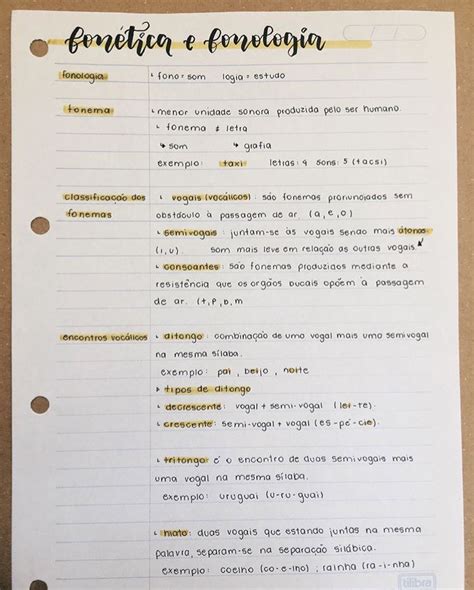 fonética e fonologia
fonologia
fono = som logia = estudo
fonema
menor unidade sonora produzida pelo ser humano.
fonema ≠ letra
som grafia
exemplo: taxi letras: 4 sons: 5 (tacsi)
classificação dos fonemas
vogais (vocálicos): são fonemas pronunciados sem
obstáculo à passagem de ar. (a, e, o)
semivogais: juntam-se às vogais sendo mais átonas
(i, u). som mais leve em relação as outras vogais
consoantes: são fonemas produzidos mediante a
resistência que os orgãos bucais opõem à passagem
de ar. (t, p, b, m
encontros vocálicos
ditongo: combinação de uma vogal mais uma semivogal
na mesma sílaba.
exemplo: pai, beijo, noite
tipos de ditongo
decrescente: vogal + semi-vogal (lei-te).
crescente: semi-vogal + vogal (es-pé-cie).
tritongo: é o encontro de duas semivogais mais
uma vogal na mesma sílaba.
exemplo: uruguai (u-ru-guai)
hiato: duas vogais que estando juntas na mesma
palavra, separam-se na separação silábica.
exemplo: coelho (co-e-lho); rainha (ra-i-nha)
tilibra